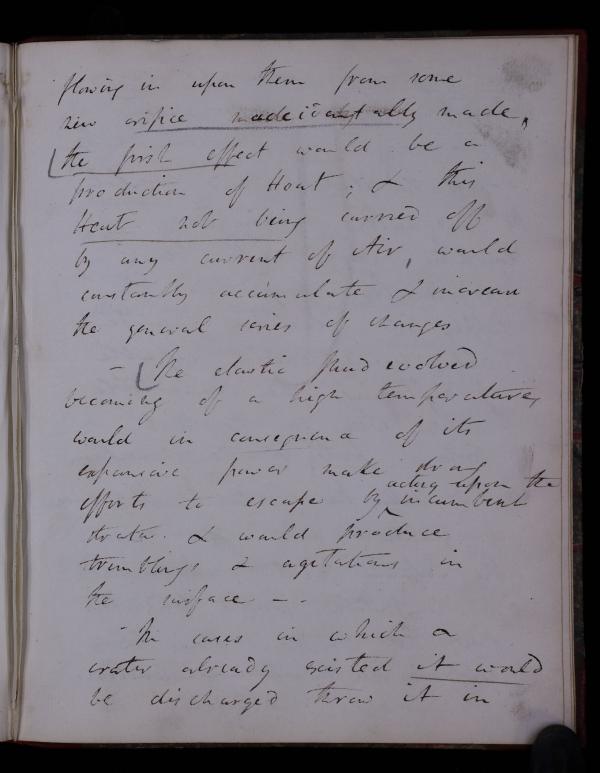 flowing in upon them from some
new orifice accidentally made,
the first effect would be a
production of Heat; & this
Heat not being carried off
by any current of Air, would
constantly accumulate & increase
the general series of changes
– The elastic fluid evolved
becoming of a high temperature,
would in consequence of its
expansive power make strong
efforts to escape by acting upon the incumbent
strata. & would produce
tremblings & agitations in
the surface – .
– In cases in which a
crater already existed it would
be discharged throw it in